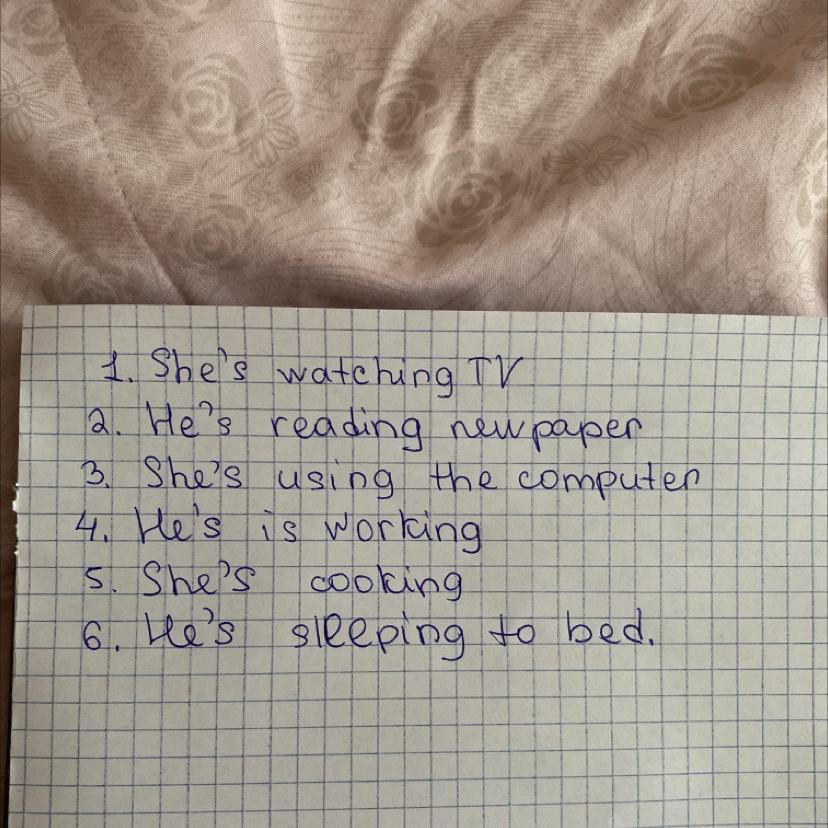 1. She's watching TV
2. He's reading newpaper
3. She's using the computer
4. He's is working
5. She's cooking
6. He's sleeping to bed.